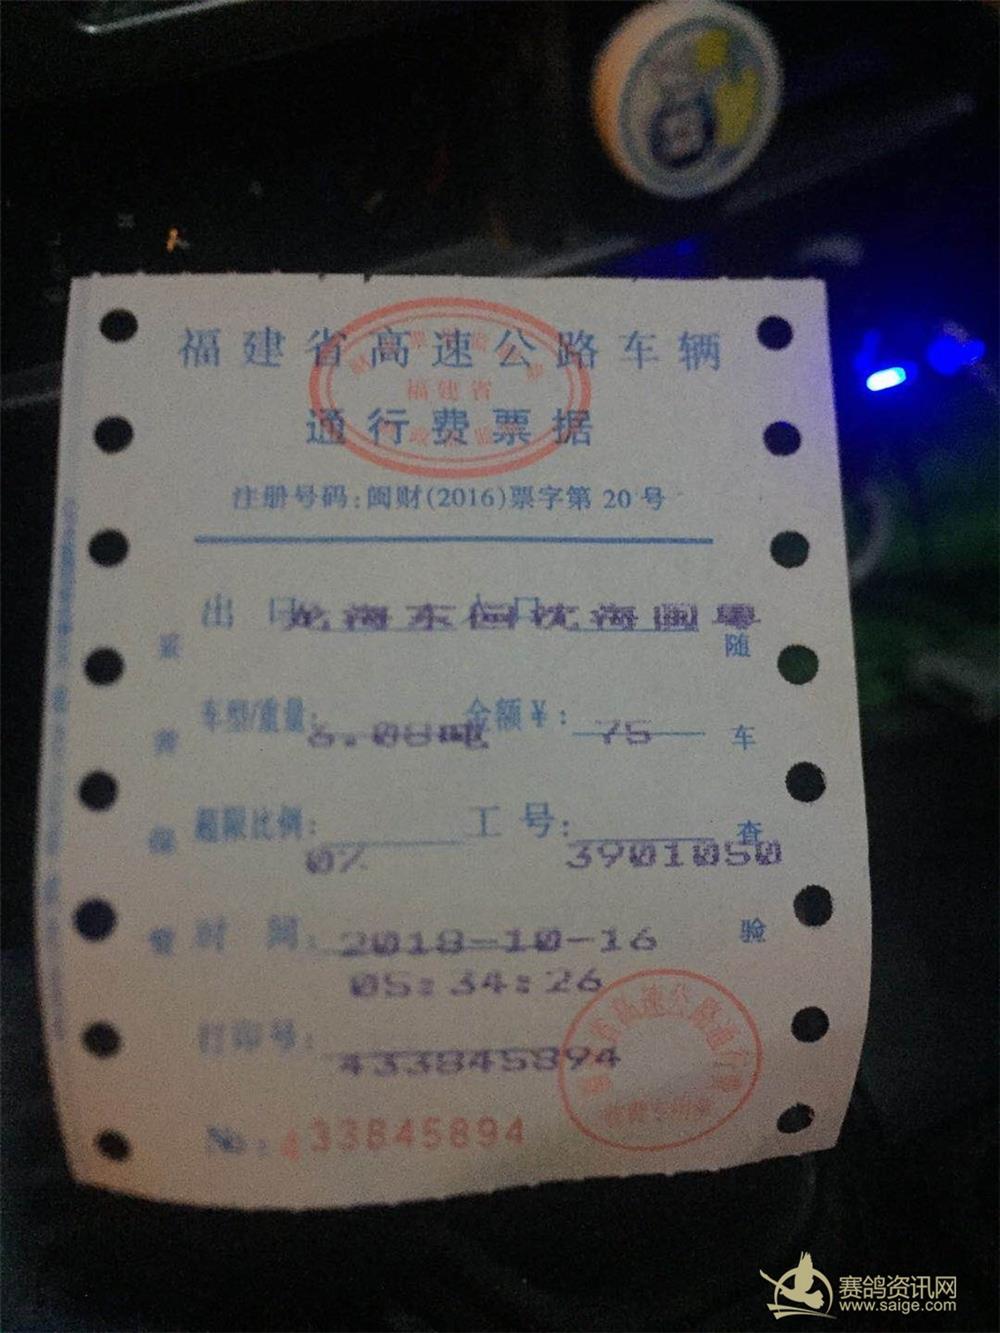 福建省高速公路车辆
福建省
通行费票据
注册号码:闽财(2016)票字第 20 号
出 口 龙海东 沈海闽粤
随车查验
车型/重量: 6.08吨 金额¥: 75
超限比例: 0% 工 号: 3901050
时 间: 2018-10-16
05:34:26
打印号: 433845894
№: 433845894
赛鸽资讯网
www.saige.com